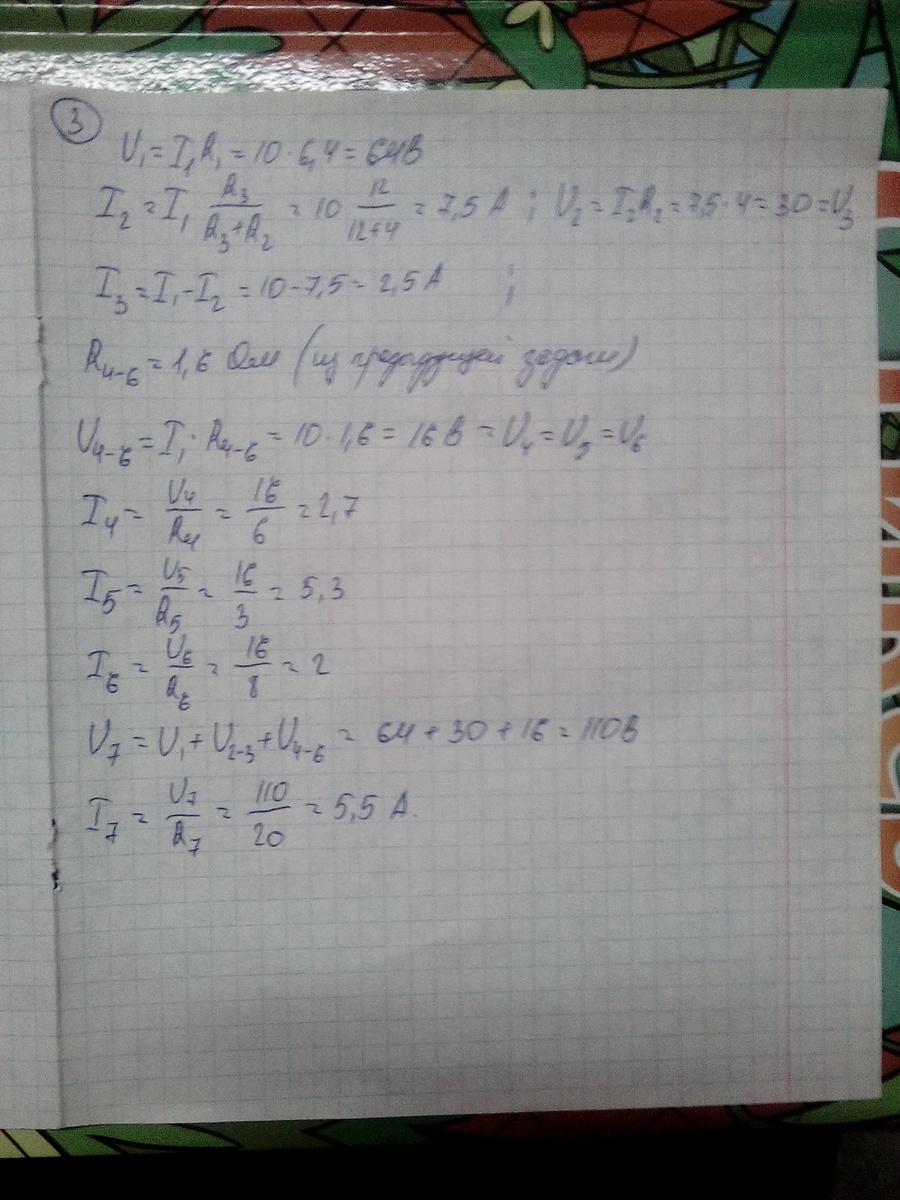 3
U₁ = I₁R₁ = 10 · 6,4 = 64В
I₂ = I₁ R₃/(R₃+R₂) = 10 12/(12+4) = 7,5 А ; U₂ = I₂R₂ = 7,5·4 = 30 = U₃
I₃ = I₁ - I₂ = 10 - 7,5 = 2,5 А ;
R₄₋₆ = 1,6 Ом (из предыдущей задачи)
U₄₋₆ = I₁ · R₄₋₆ = 10 · 1,6 = 16 В = U₄ = U₅ = U₆
I₄ = U₄/R₄ = 16/6 = 2,7
I₅ = U₅/R₅ = 16/3 = 5,3
I₆ = U₆/R₆ = 16/8 = 2
U₇ = U₁ + U₂₋₃ + U₄₋₆ = 64 + 30 + 16 = 110В
I₇ = U₇/R₇ = 110/20 = 5,5 А.